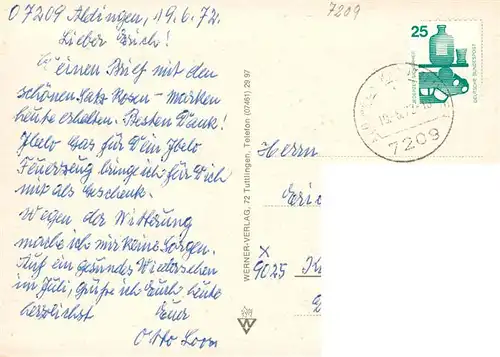 D 7209 Aldingen, 19.6.72.
7209
Lieber Erich!
Deinen Brief mit den
schönen Satz Rosen-Marken
heute erhalten. Besten Dank!
Ibelo Gas für Dein Ibelo
Feuerzeug bringe ich für Dich
mit als Geschenk.
Wegen der Witterung
mache ich mir keine Sorgen.
Auf ein gesundes Wiedersehen
im Juli, grüße ich Euch heute
herzlichst Euer
Otto
WERNER-VERLAG, 72 Tuttlingen, Telefon (07461) 29 97
W
25
DEUTSCHE BUNDESPOST
7209
Herrn
Eric
x
9025